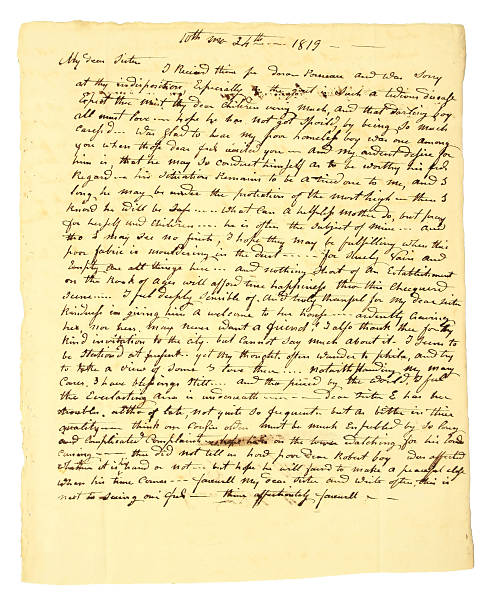 10th mo 24th — 1819 —
My dear Sister
I Recd thine per and was Sorry
at thy indisposition, Especially as is Such a tedious disease
Expect thee mist thy dear Children very much, and that darling boy
all must love — hope he has not got Spoild by being So much
Caress'd — Was Glad to hear my poor homeless boy was one among
you when those dear frds visited you — and my ardent desire for
him is, that he may So conduct himself as to be worthy his frds
Regard — his Situation Remains to be a tried one to me, and I
long he may be under the protection of the most high — then I
Know he will be Safe — What Can A helpless mother do, but pray
for herself and Children — he is often the Subject of mine — and
tho I may See no fruits, I hope they may be fulfilling when this
poor fabric is mouldering in the dust — for Surely Vain and
Empty are all things here — and nothing Short of An Establishment
on the Rock of Ages will afford true happiness thro this Chequerd
Scene — I feel deeply Sensible of And truly thankful for my dear Sister
Kindness in giving her A welcome to her house — ardently Craving
her, nor hers, may never want a friend! I also thank thee for thy
Kind invitation to the city, but Cannot Say much about it — I Seem to
be Stationed at present — yet my thoughts often wander to phila, and try
to take a view of Some I love there — notwithstanding my many
Cares, I have blessings Still — and tho pierced by the World, I feel
the Everlasting Arms is underneath — Dear Sister E has her
troubles of late, not quite So frequent, but as bitter in their
quality — think our Cousin must be much Enfeebled by So long
and Complicated Complaint — hope he's on the tower Watching for his Lords
Coming — thee did not tell us how poor dear Robert boy was affected
Whether it is hand or not — but hope he will Joind to make a peaceful close
When his time Comes — farewell my dear Sister and write often, this is
next to Seeing our frds — thine affectionately farewell —